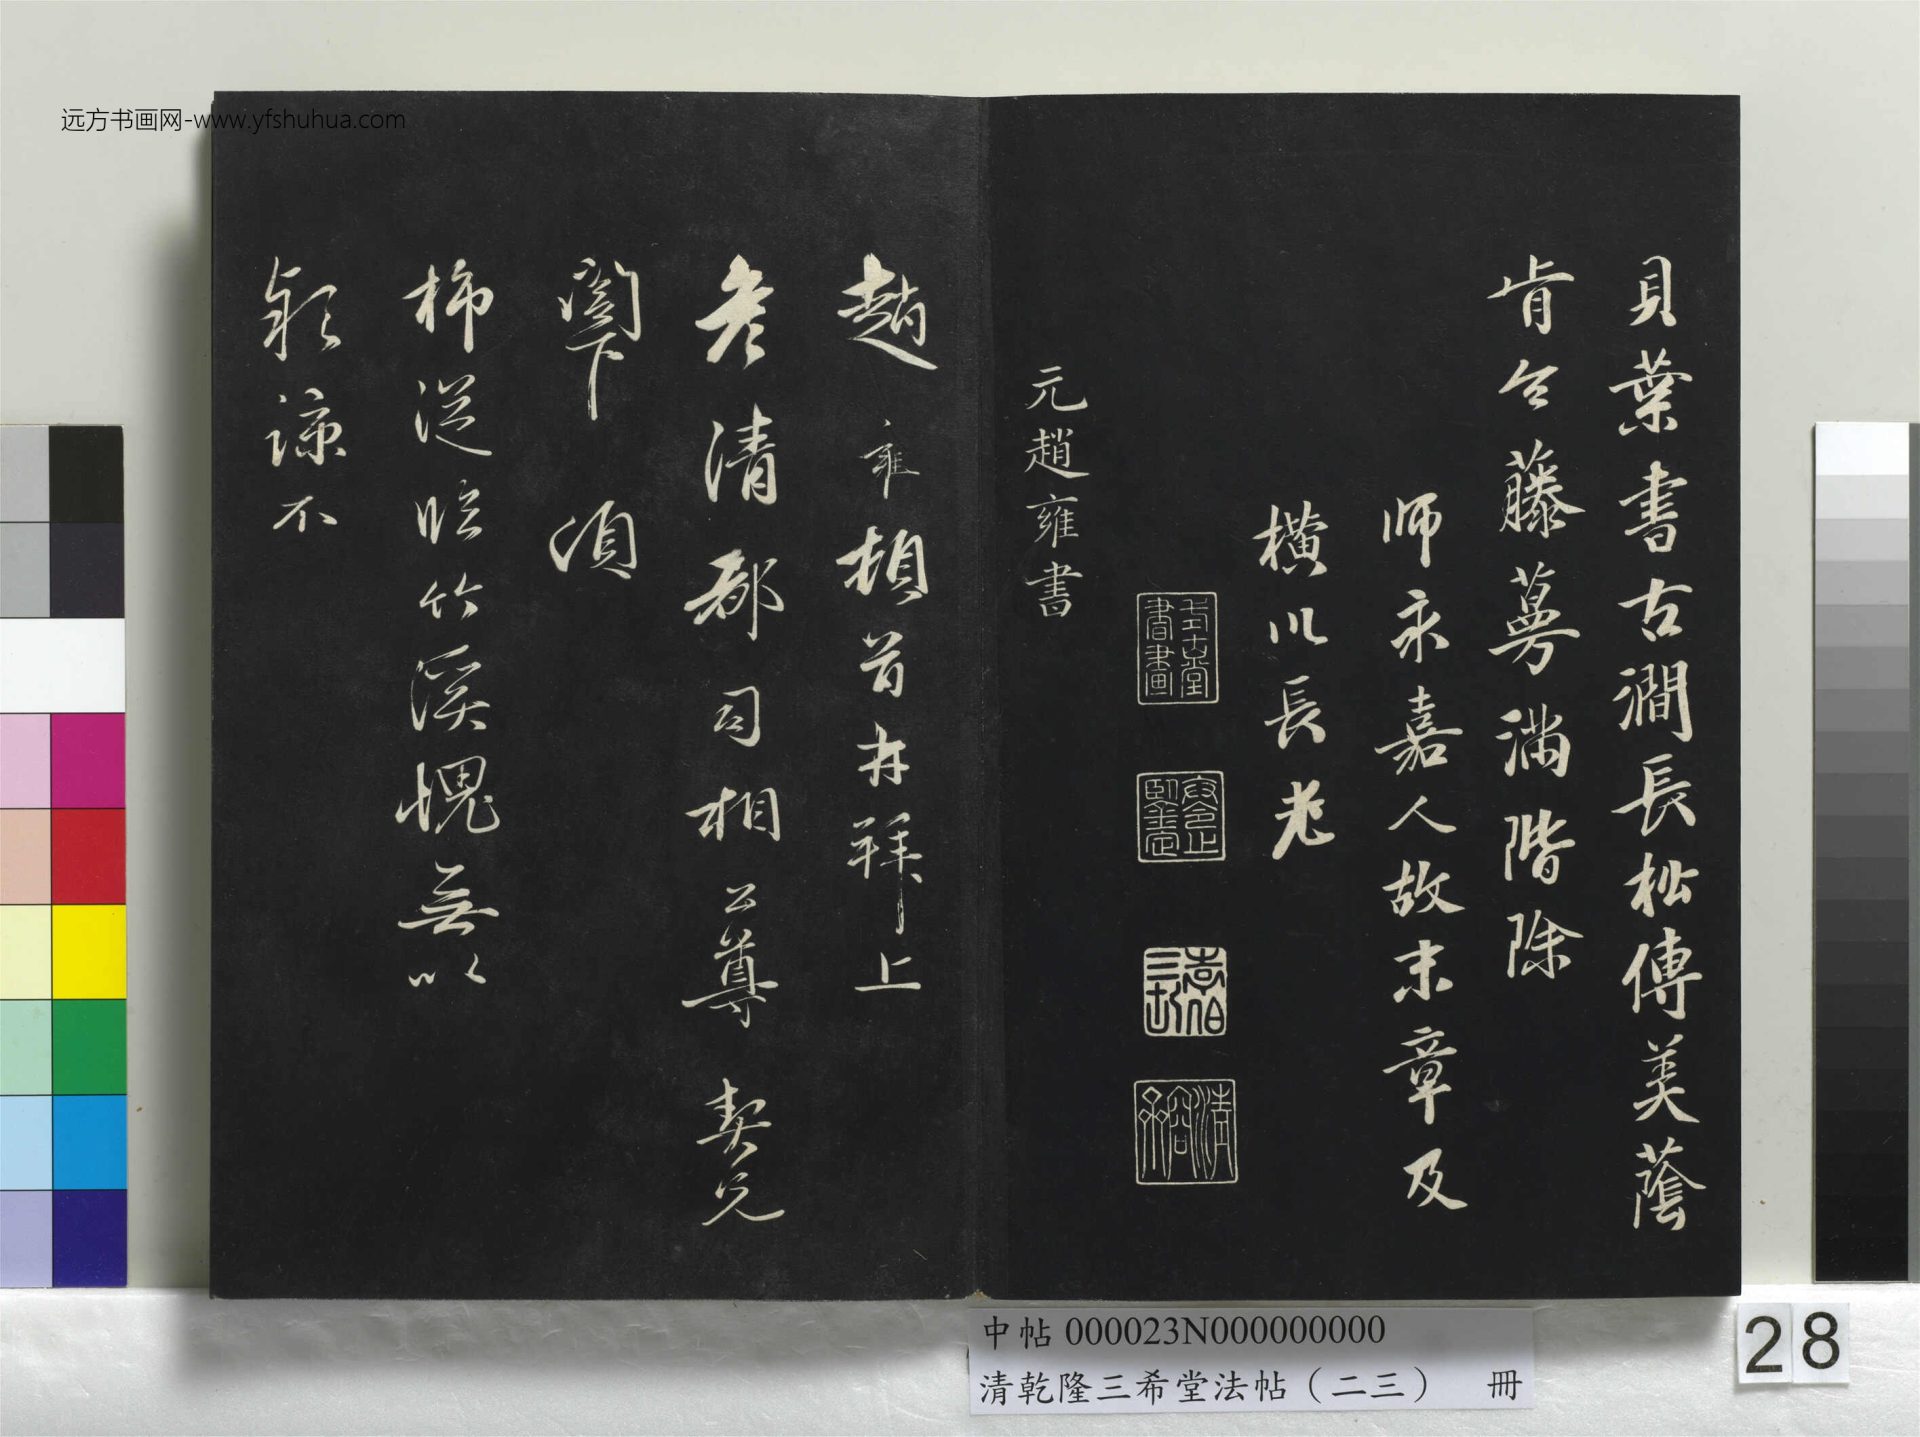 远方书画网-www.yfshuhua.com
貝葉書古澗長松傳美蔭
肯令藤蔓滿階除
师永嘉人故末章及
橫川長老
元趙雍書
趙雍頓首再拜上
彥清都司相公尊契兄
閣下須
柿從臨竹溪愧無以
報諒不
中帖 000023N000000000
清乾隆三希堂法帖（二三） 冊
28